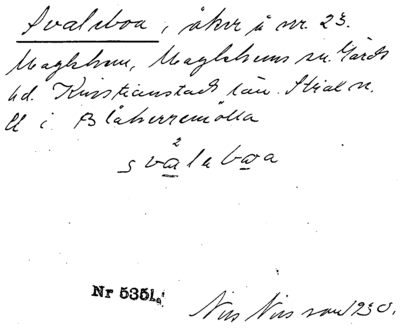 Svaleboa, åker å nr. 23.
Maglehem, Maglehems sn. Gärds
hd. Kristianstads län. Strax n.
ut i Blåherremölla
2
svalaboa
Nr 5351
Nils Nilsson 1930.